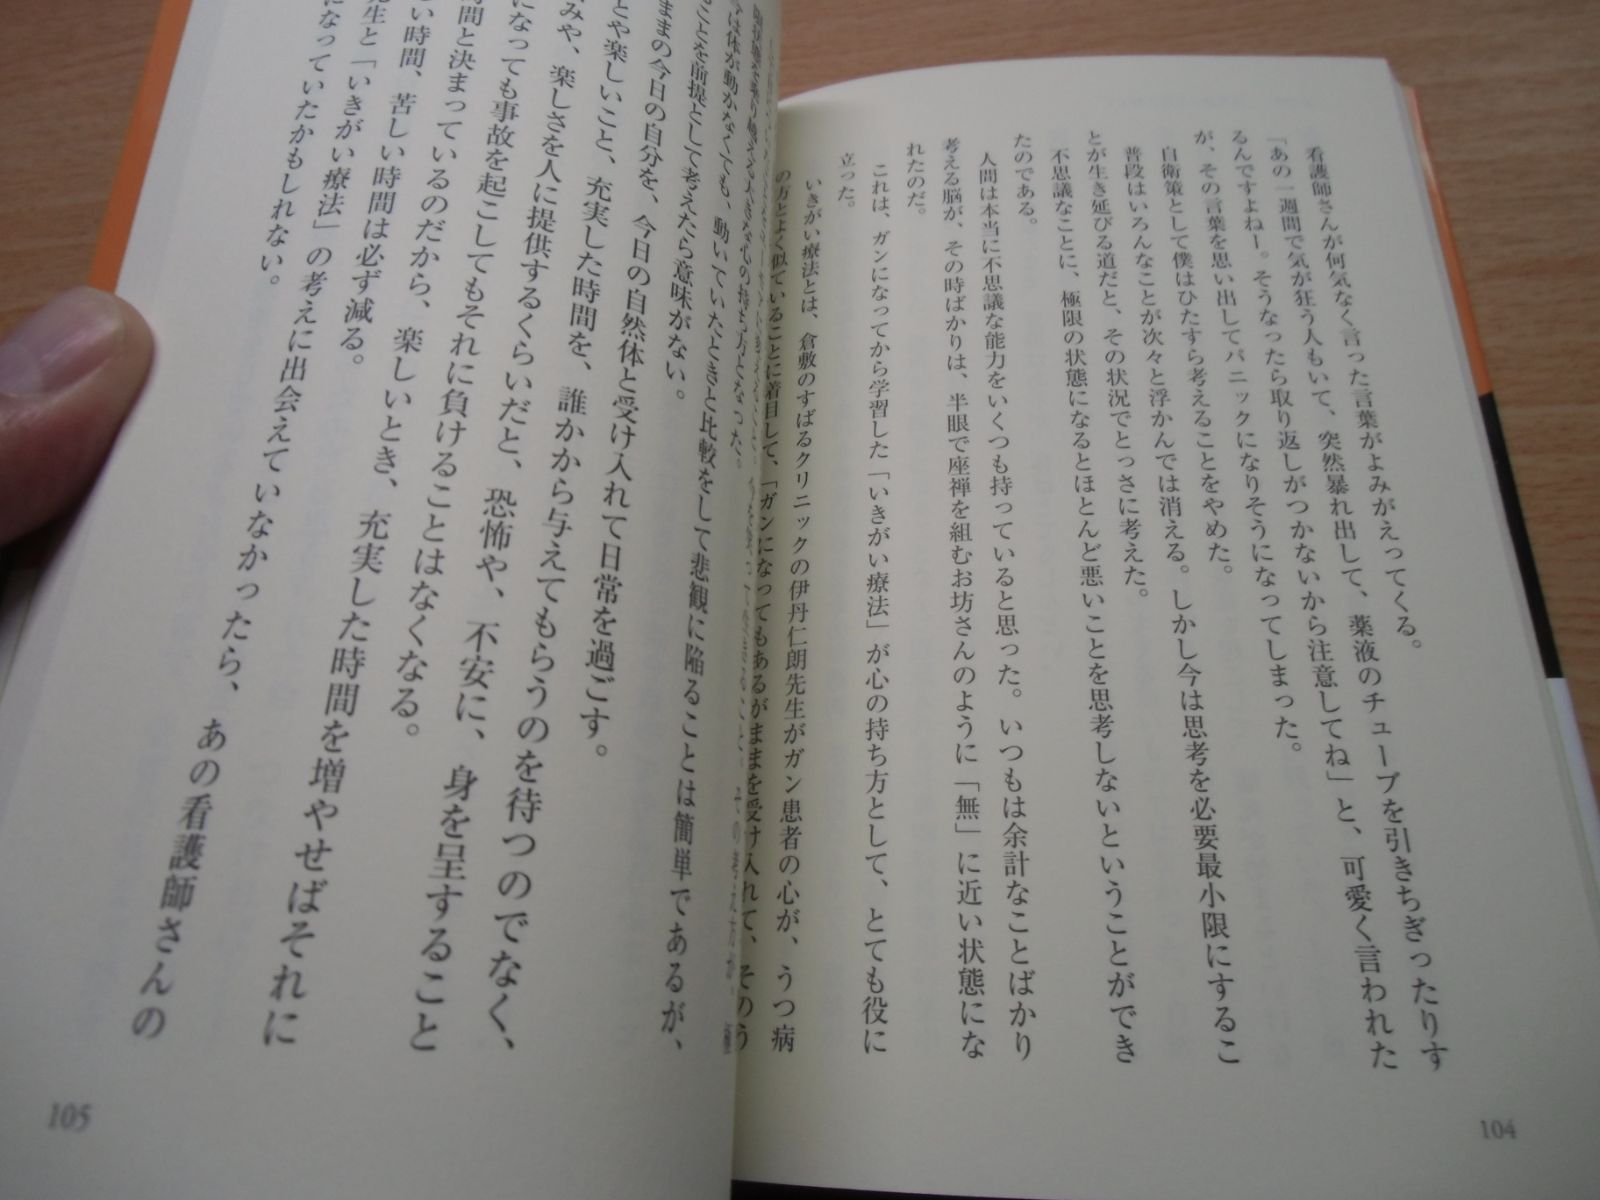 看護師さんが何気なく言った言葉がよみがえってくる。
「あの一週間で気が狂う人もいて、突然暴れ出して、薬液のチューブを引きちぎったりす
るんですよねー。そうなったら取り返しがつかないから注意してね」と、可愛く言われた
が、その言葉を思い出してパニックになりそうになってしまった。
自衛策として僕はひたすら考えることをやめた。
普段はいろんなことが次々と浮かんでは消える。しかし今は思考を必要最小限にするこ
とが生き延びる道だと、その状況でとっさに考えた。
不思議なことに、極限の状態になるとほとんど悪いことを思考しないということができ
たのである。
人間は本当に不思議な能力をいくつも持っていると思った。いつもは余計なことばかり
考える脳が、その時ばかりは、半眼で座禅を組むお坊さんのように「無」に近い状態にな
れたのだ。
これは、ガンになってから学習した「いきがい療法」が心の持ち方として、とても役に
立った。
いきがい療法とは、倉敷のすばるクリニックの伊丹仁朗先生がガン患者の心が、うつ病
の方とよく似ていることに着目して、「ガンになってもあるがままを受け入れて、そのう
104
は体が動かなくても、動いていたときと比較をして悲観に陥ることは簡単であるが、
ことを前提として考えたら意味がない。
ままの今日の自分を、今日の自然体と受け入れて日常を過ごす。
とや楽しいこと、充実した時間を、誰かから与えてもらうのを待つのでなく、
みや、楽しさを人に提供するくらいだと、恐怖や、不安に、身を呈すること
になっても事故を起こしてもそれに負けることはなくなる。
間と決まっているのだから、楽しいとき、充実した時間を増やせばそれに
い時間、苦しい時間は必ず減る。
先生と「いきがい療法」の考えに出会えていなかったら、あの看護師さんの
になっていたかもしれない。
105